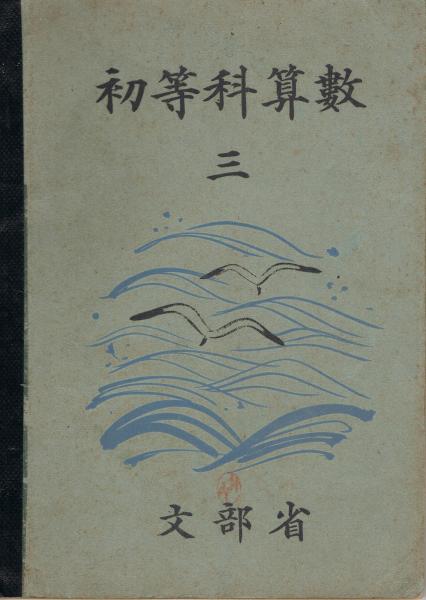 初等科算數
三
文部省